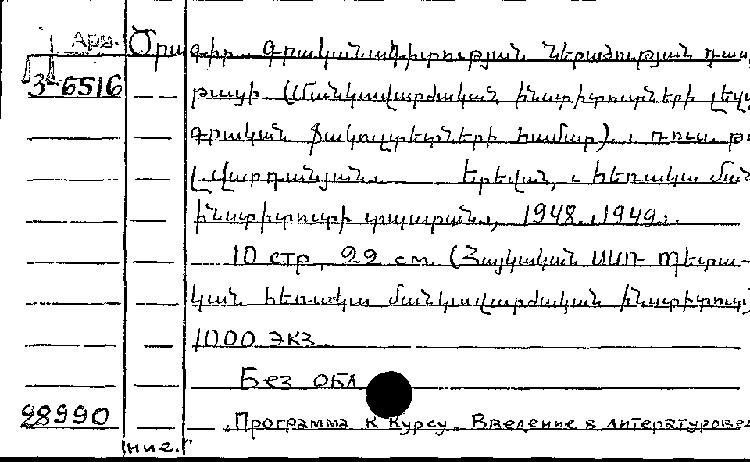 Арм. Ծրագիր գրականագիտության ներածության դաս
3-6516 թացի (Մանկավարժական ինստիտուտների լեզվ
գրական ֆակուլտետների համար).
Լ. Վարդանյան. Երևան, հեռակա ման
ինստիտուտի տպարան, 1948. 1949.
10 стр, 22 см. (Հայկական ՍՍՌ Պետա-
կան հեռակա մանկավարժական ինստիտուտ)
1000 экз
Без обл
28990 „Программа к курсу „Введение в литературовед